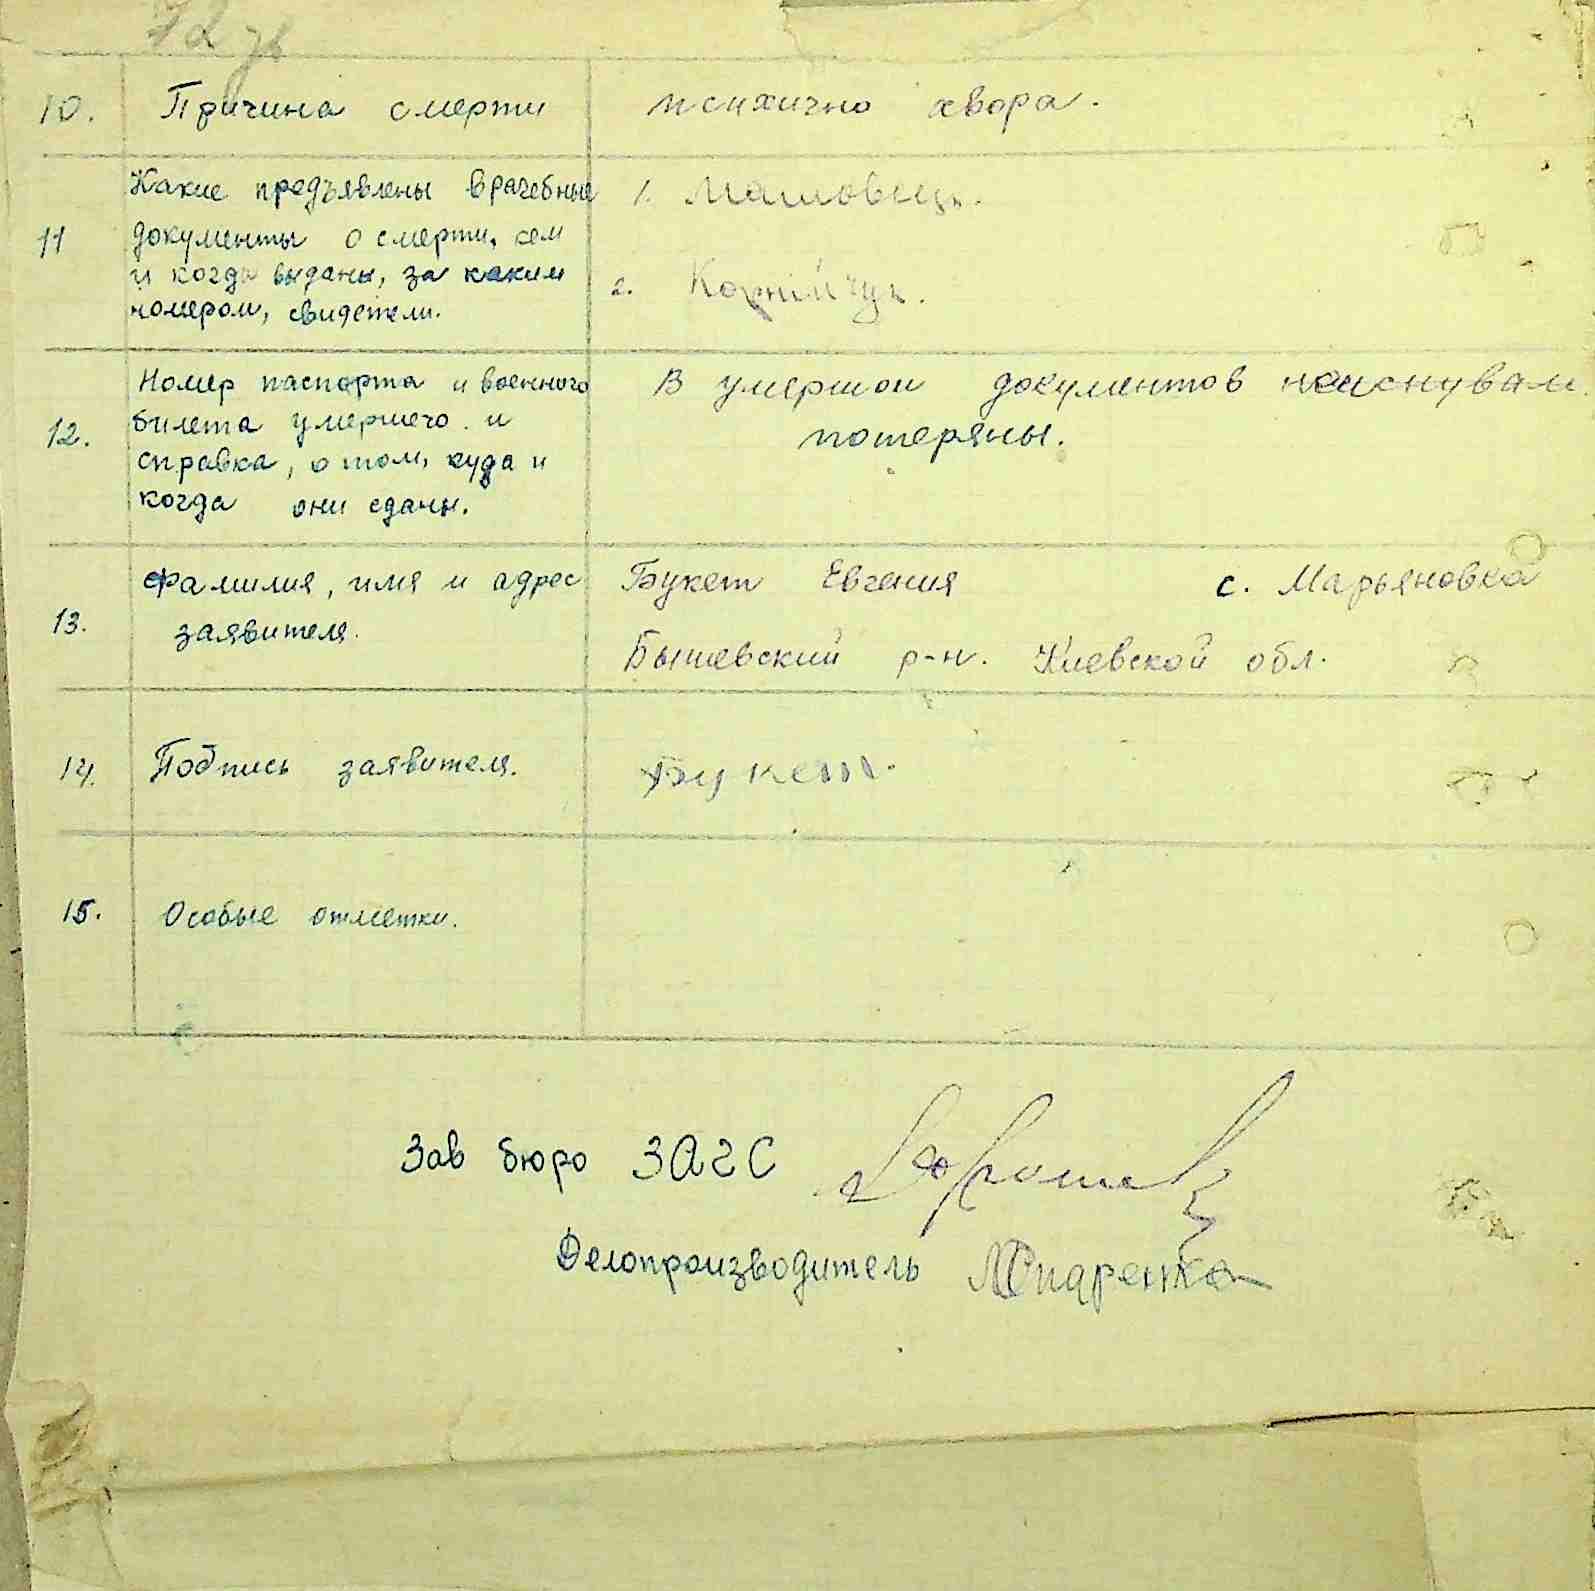 72 зв
10. Причина смерти психично хвора.
Какие предъявлены врачебные 1.
11 документы о смерти, кем
и когда выданы, за каким 2. Корнійчук.
номером, свидетели.
Номер паспорта и военного В умершои документов неиснувал.
12. билета умершего и потеряны.
справка, о том, куда и
когда они сданы.
Фамилия, имя и адрес Букет Евгения с. Марьяновка
13. заявителя. Бышевский р-н. Киевской обл.
14. Подпись заявителя. Букет.
15. Особые отметки.
Зав бюро ЗАГС
Делопроизводитель